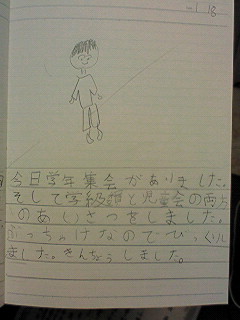 1 18
今日学年集会がありました。
そして学級部と児童会の両方
のあいさつをしました。
ぶっちゃけなのでびっくりし
ました。きんちょうしました。